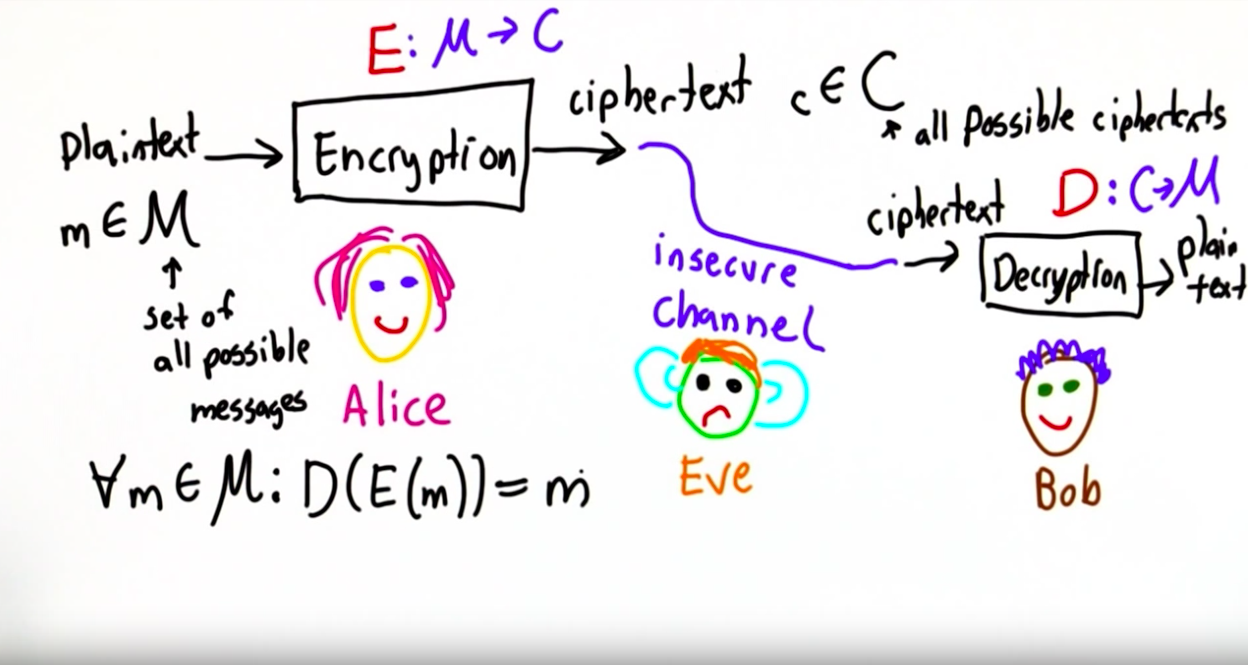 E: M → C
Plaintext → Encryption → ciphertext c ∈ C
all possible ciphertexts
m ∈ M
set of
all possible
messages
Alice
insecure
channel
Eve
ciphertext → Decryption → plain
text
D: C → M
Bob
∀m ∈ M: D(E(m)) = m